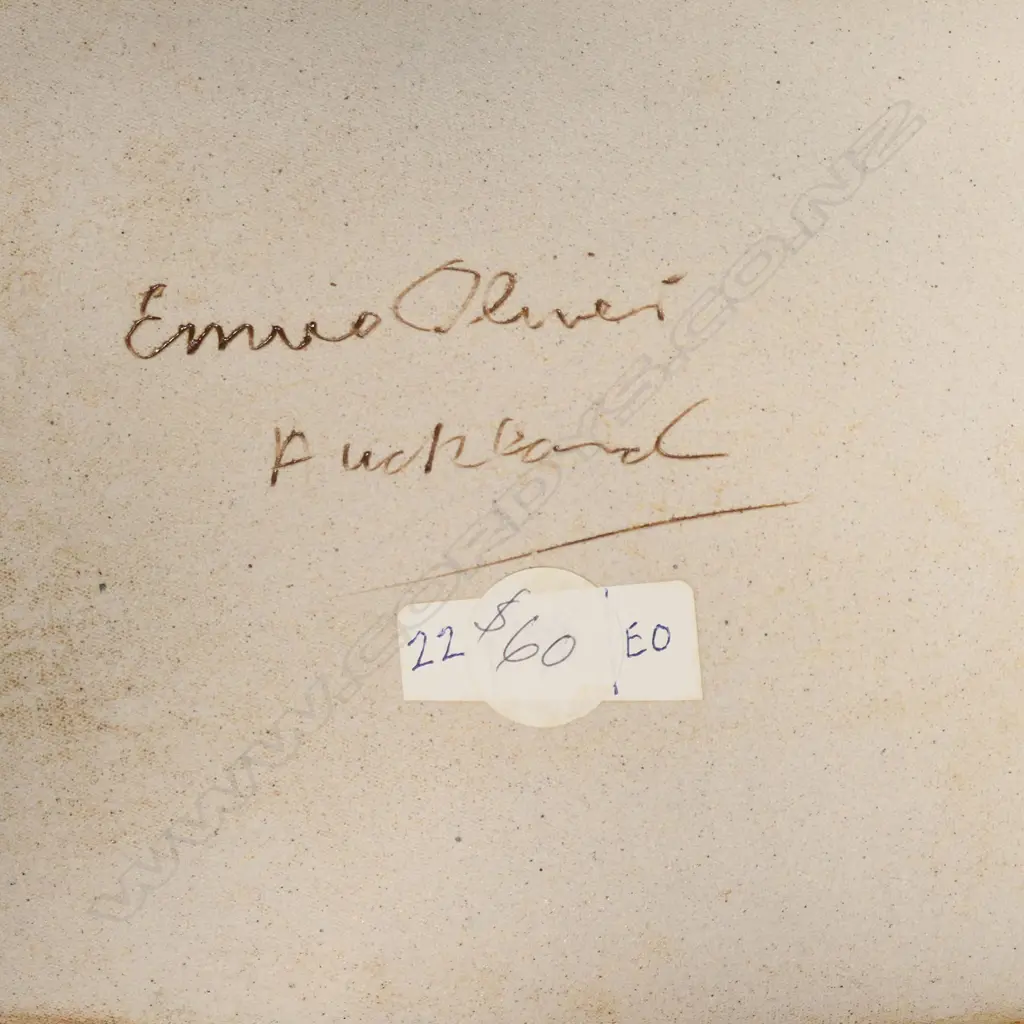 Ennio Oliver
Auckland
22 $60 EO
WWW.CORDYS.CO.NZ